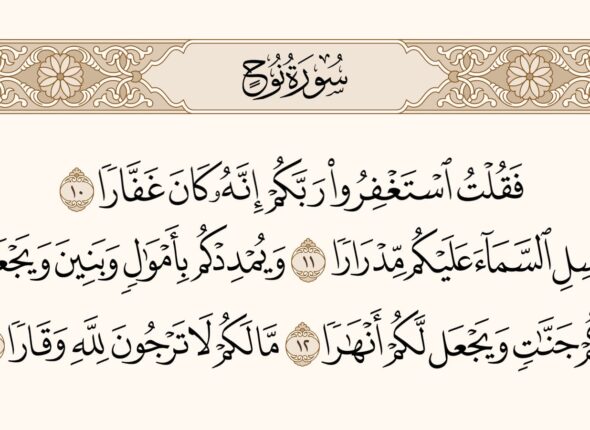 سُورَةُ نُوحٍ
فَقُلْتُ ٱسْتَغْفِرُوا۟ رَبَّكُمْ إِنَّهُۥ كَانَ غَفَّارًا ١٠
سِلِ ٱلسَّمَآءَ عَلَيْكُم مِّدْرَارًا ١١ وَيُمْدِدْكُم بِأَمْوَٰلٍ وَبَنِينَ وَيَجْعَ
جَنَّٰتٍ وَيَجْعَل لَّكُمْ أَنْهَٰرًا ١٢ مَّا لَكُمْ لَا تَرْجُونَ لِلَّهِ وَقَارًا